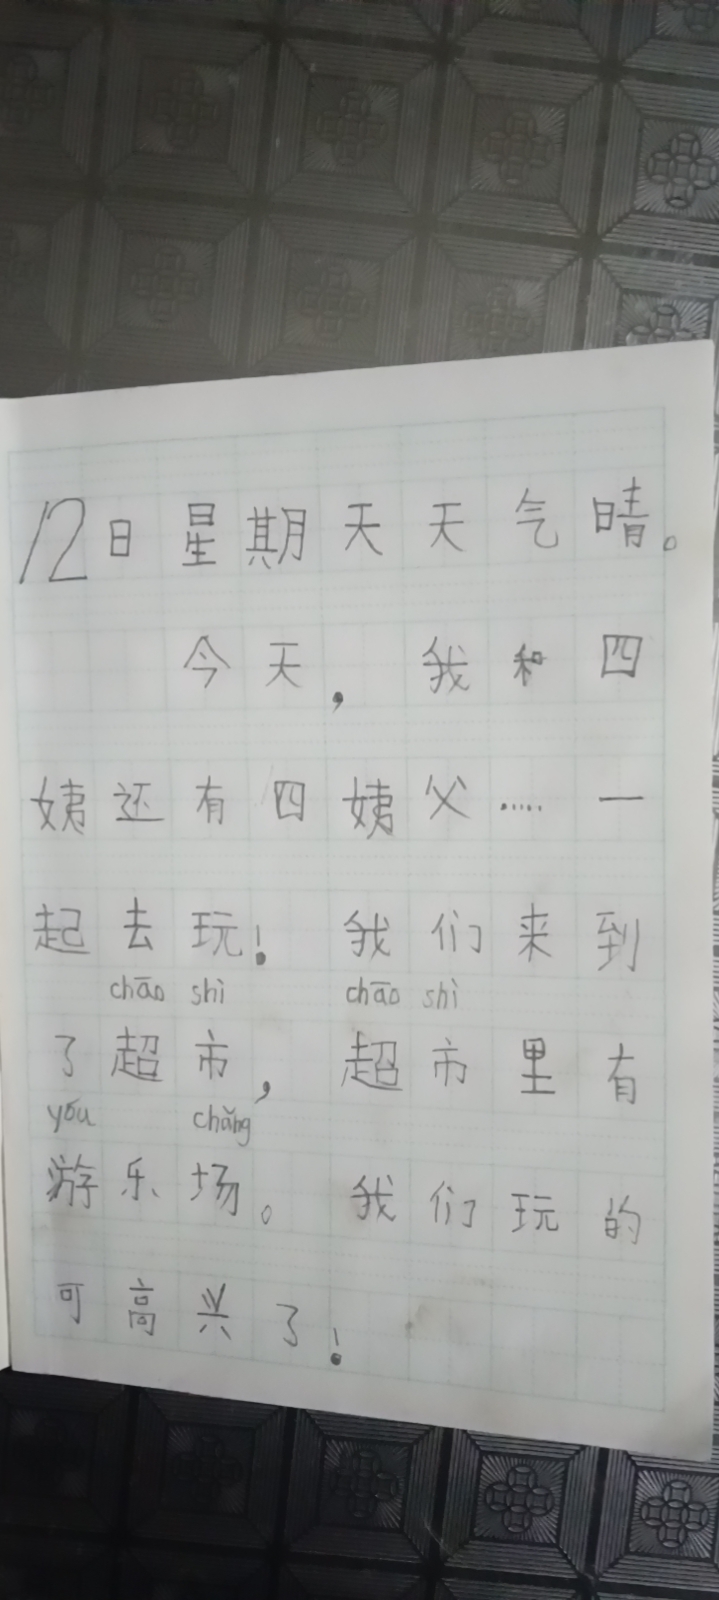 12日星期天天气晴。
今天,我和四
姨还有四姨父……一
起去玩!我们来到
chāo shì chāo shì
了超市,超市里有
yóu chǎng
游乐场。我们玩的
可高兴了!